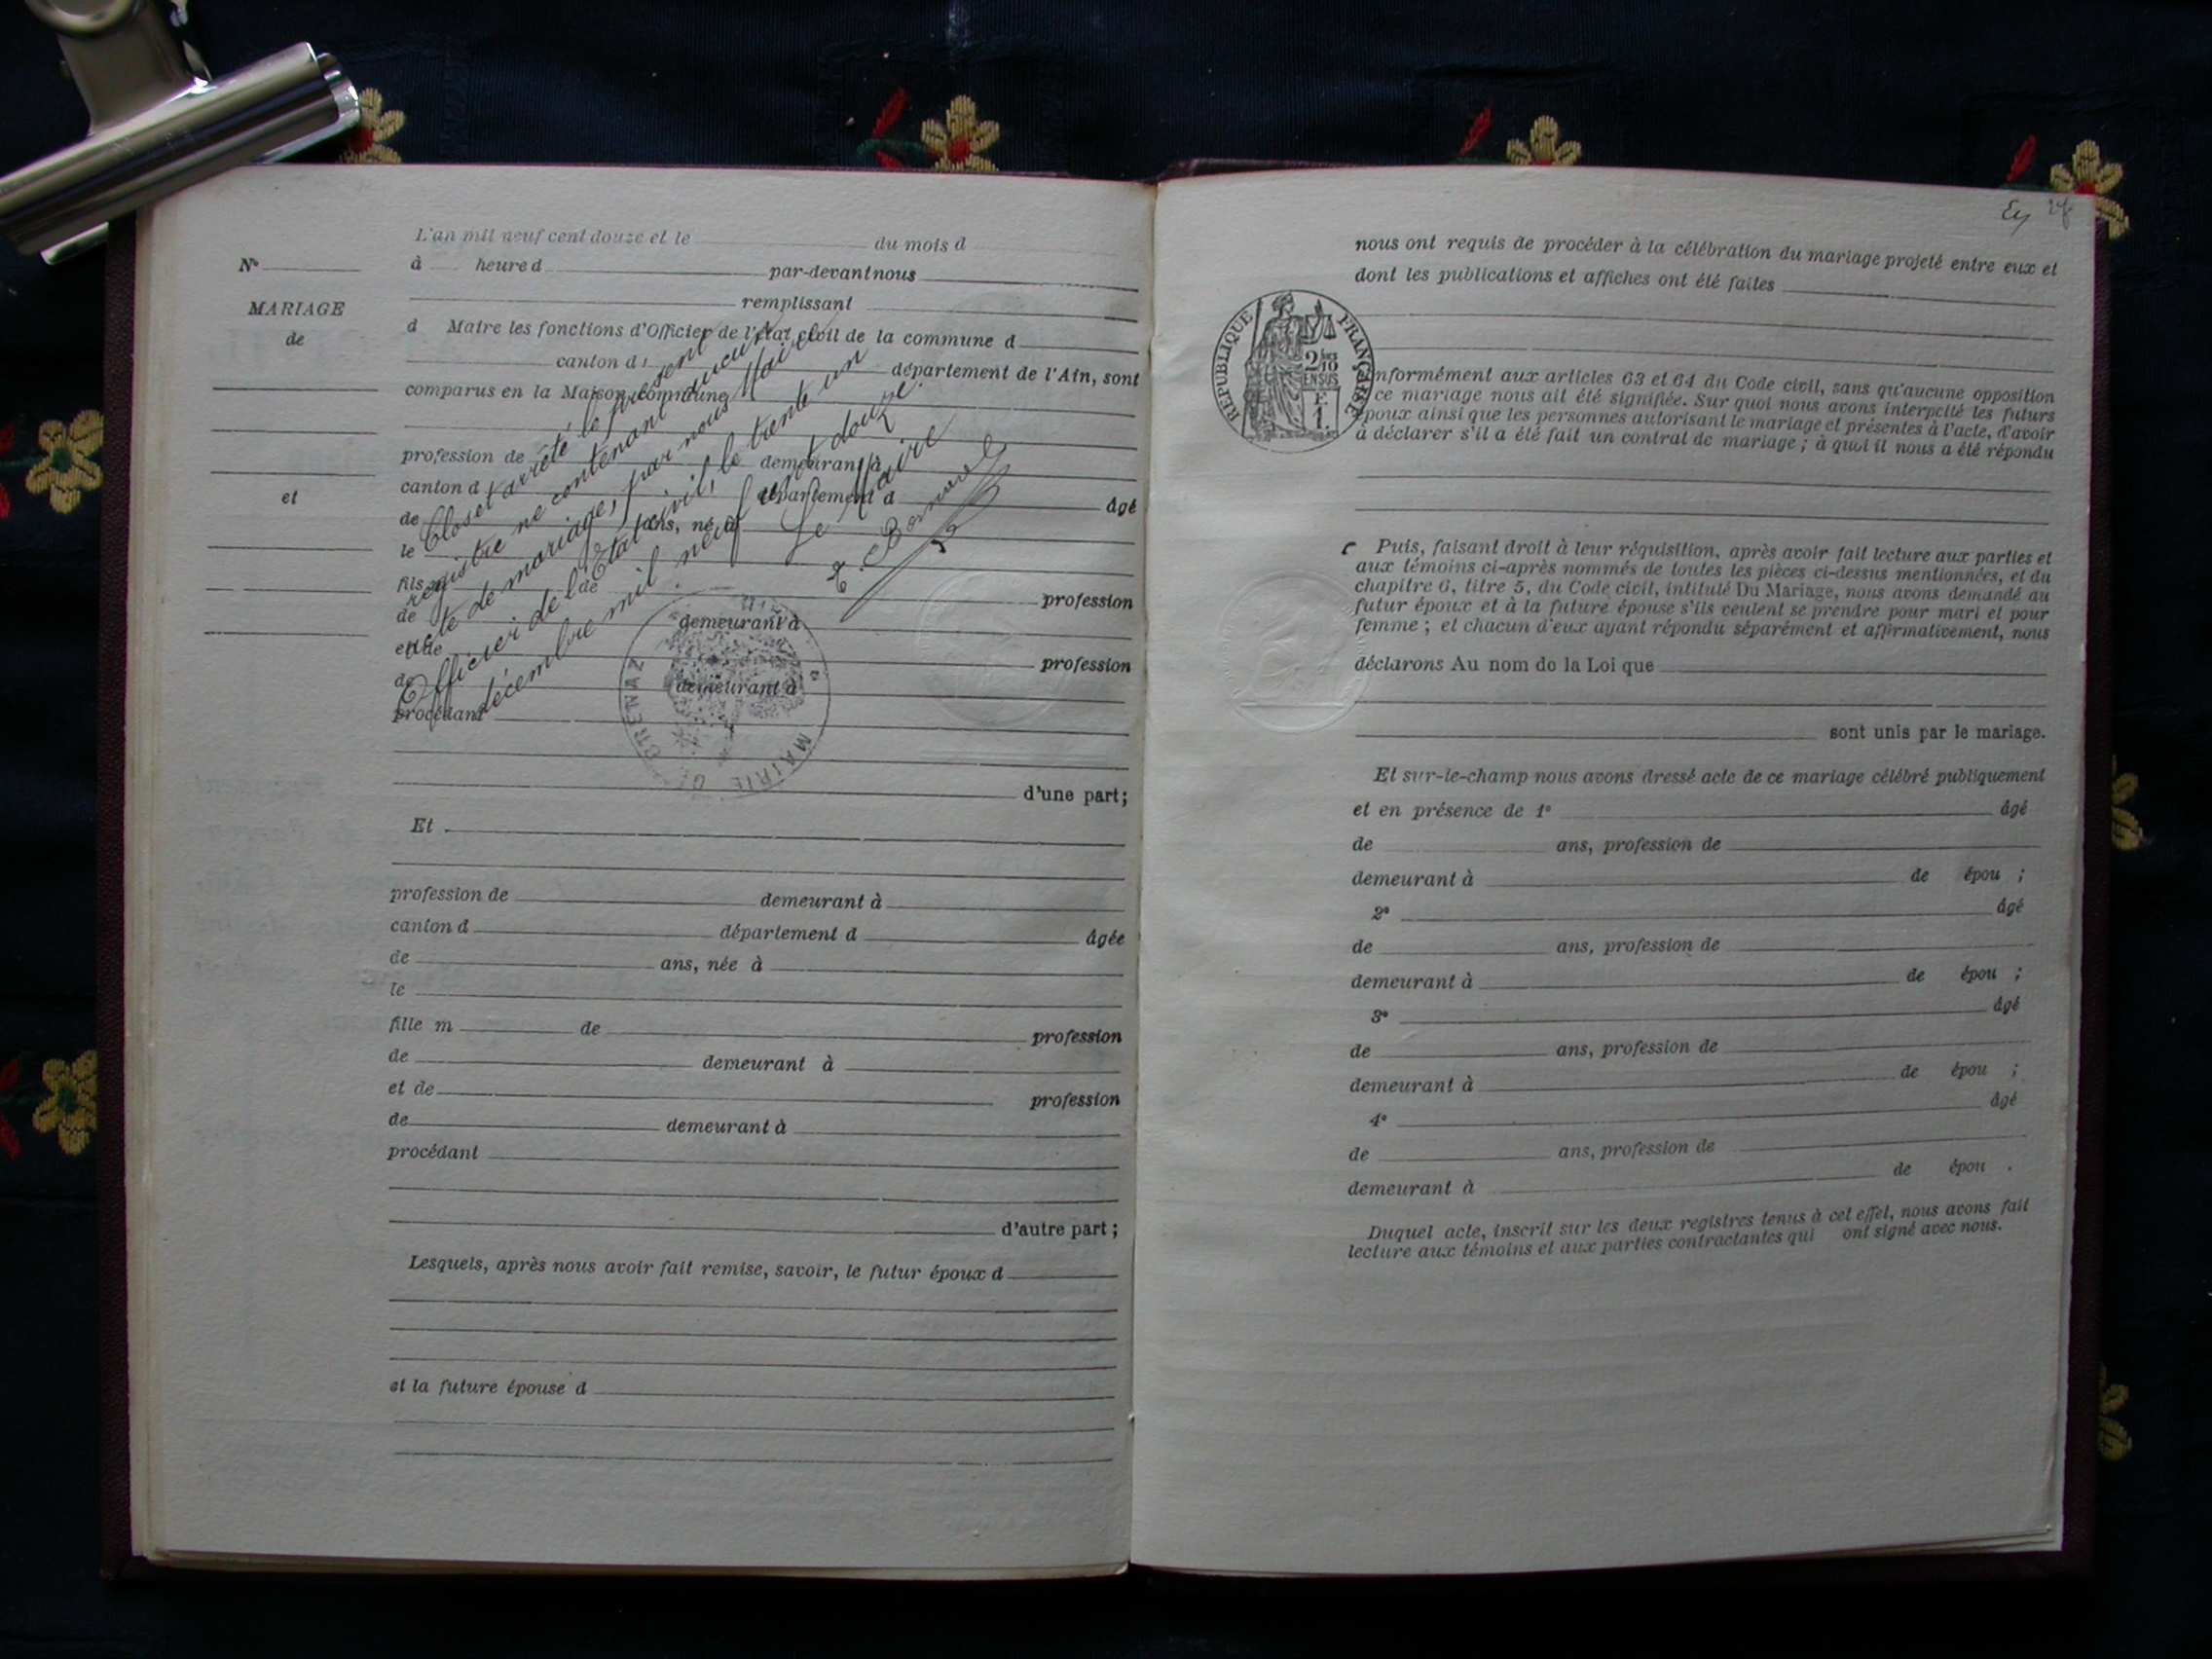 L'an mil neuf cent douze et le du mois d
N° à heure d par-devant nous
remplissant
MARIAGE
de
d Maire les fonctions d'Officier de l'état civil de la commune d
canton d département de l'Ain, sont
comparus en la Maison commune
profession de demeurant à
canton d département d âgé
et
de ans, né à
le
fils de
de profession
demeurant à
et de
de profession
demeurant à
procédant
d'une part;
Clos et arrêté le présent
registre ne contenant aucun
acte de mariage, par nous Maire
Officier de l'Etat civil, le trente un
décembre mil neuf cent douze.
Le Maire
MAIRIE DE BRENAZ
Et
profession de demeurant à
canton d département d âgée
de ans, née à
le
fille m de
profession
de demeurant à
et de
profession
de demeurant à
procédant
d'autre part;
Lesquels, après nous avoir fait remise, savoir, le futur époux d
et la future épouse d
nous ont requis de procéder à la célébration du mariage projeté entre eux et
dont les publications et affiches ont été faites
RÉPUBLIQUE FRANÇAISE
2/10
EN SUS
1 F.
nformément aux articles 63 et 64 du Code civil, sans qu'aucune opposition
ce mariage nous ait été signifiée. Sur quoi nous avons interpellé les futurs
époux ainsi que les personnes autorisant le mariage et présentes à l'acte, d'avoir
à déclarer s'il a été fait un contrat de mariage; à quoi il nous a été répondu
Puis, faisant droit à leur réquisition, après avoir fait lecture aux parties et
aux témoins ci-après nommés de toutes les pièces ci-dessus mentionnées, et du
chapitre 6, titre 5, du Code civil, intitulé Du Mariage, nous avons demandé au
futur époux et à la future épouse s'ils veulent se prendre pour mari et pour
femme; et chacun d'eux ayant répondu séparément et affirmativement, nous
déclarons Au nom de la Loi que
sont unis par le mariage.
Et sur-le-champ nous avons dressé acte de ce mariage célébré publiquement
et en présence de 1° âgé
de ans, profession de
demeurant à de épou ;
2° âgé
de ans, profession de
demeurant à de épou ;
3° âgé
de ans, profession de
demeurant à de épou ;
4° âgé
de ans, profession de
demeurant à de épou .
Duquel acte, inscrit sur les deux registres tenus à cet effet, nous avons fait
lecture aux témoins et aux parties contractantes qui ont signé avec nous.